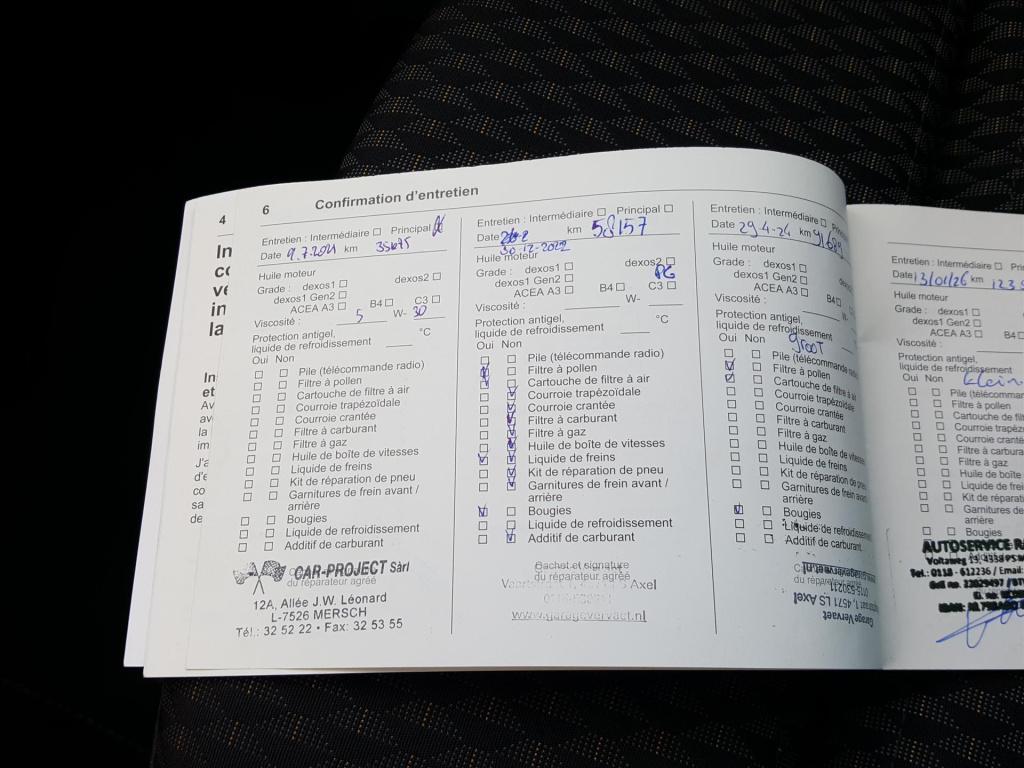 4
In
et
Av
la
im
J'a
d'e
co
sa
de
6 Confirmation d'entretien
Entretien : Intermédiaire ☐ Principal
Date 9.7.2021 km 35675
Huile moteur
Grade : dexos1 ☐ dexos2 ☐
dexos1 Gen2 ☐
ACEA A3 ☐ B4 ☐ C3 ☐
Viscosité : 5 W- 30
Protection antigel,
liquide de refroidissement ____ °C
Oui Non
☐ ☐ Pile (télécommande radio)
☐ ☐ Filtre à pollen
☐ ☐ Cartouche de filtre à air
☐ ☐ Courroie trapézoïdale
☐ ☐ Courroie crantée
☐ ☐ Filtre à carburant
☐ ☐ Filtre à gaz
☐ ☐ Huile de boîte de vitesses
☐ ☐ Liquide de freins
☐ ☐ Kit de réparation de pneu
☐ ☐ Garnitures de frein avant /
arrière
☐ ☐ Bougies
☐ ☐ Liquide de refroidissement
☐ ☐ Additif de carburant
CAR-PROJECT Sàrl
du réparateur agréé
12A, Allée J.W. Léonard
L-7526 MERSCH
Tél.: 32 52 22 • Fax: 32 53 55
Entretien : Intermédiaire ☐ Principal ☐
Date km 58157
30-12-2022
Huile moteur
Grade : dexos1 ☐ dexos2 ☐
dexos1 Gen2 ☐
ACEA A3 ☐ B4 ☐ C3 ☐
Viscosité : W-
Protection antigel,
liquide de refroidissement ____ °C
Oui Non
Pile (télécommande radio)
Filtre à pollen
Cartouche de filtre à air
Courroie trapézoïdale
Courroie crantée
Filtre à carburant
Filtre à gaz
Huile de boîte de vitesses
Liquide de freins
Kit de réparation de pneu
Garnitures de frein avant /
arrière
Bougies
Liquide de refroidissement
Additif de carburant
Cachet et signature
du réparateur agréé
Axel
www.garagevervaet.nl
Entretien : Intermédiaire ☐
Date 29-4-24 km 91689
Huile moteur
Grade : dexos1 ☐
dexos1 Gen2 ☐
ACEA A3 ☐ B4
Viscosité :
Protection antigel,
liquide de refroidissement
Oui Non groot
Pile (télécommande
Filtre à pollen
Cartouche de filtre à
Courroie trapézoïdale
Courroie crantée
Filtre à carburant
Filtre à gaz
Huile de boîte de
Liquide de freins
Kit de réparation de
Garnitures de frein
arrière
Bougies
Liquide de refroidissement
Additif de carburant
du réparateur agréé
0115-630211
4571 LS Axel
Garage Vervaet
Entretien : Intermédiaire ☐
Date 13/01/26 km
Huile moteur
Grade : dexos1 ☐
dexos1 Gen2 ☐
ACEA A3 ☐
Viscosité :
Protection antigel,
liquide de refroidissement
Oui Non klein
☐ ☐ Pile (télécomman
☐ ☐ Filtre à pollen
☐ ☐ Cartouche de fil
☐ ☐ Courroie trapéz
☐ ☐ Courroie cranté
☐ ☐ Filtre à carbura
☐ ☐ Filtre à gaz
☐ ☐ Huile de boîte
☐ ☐ Liquide de frei
☐ ☐ Kit de réparati
☐ ☐ Garnitures de
arrière
☐ ☐ Bougies
AUTOSERVICE
Voltaweg 13, 4338 PS
Tel.: 0118 - 612236 / Email: